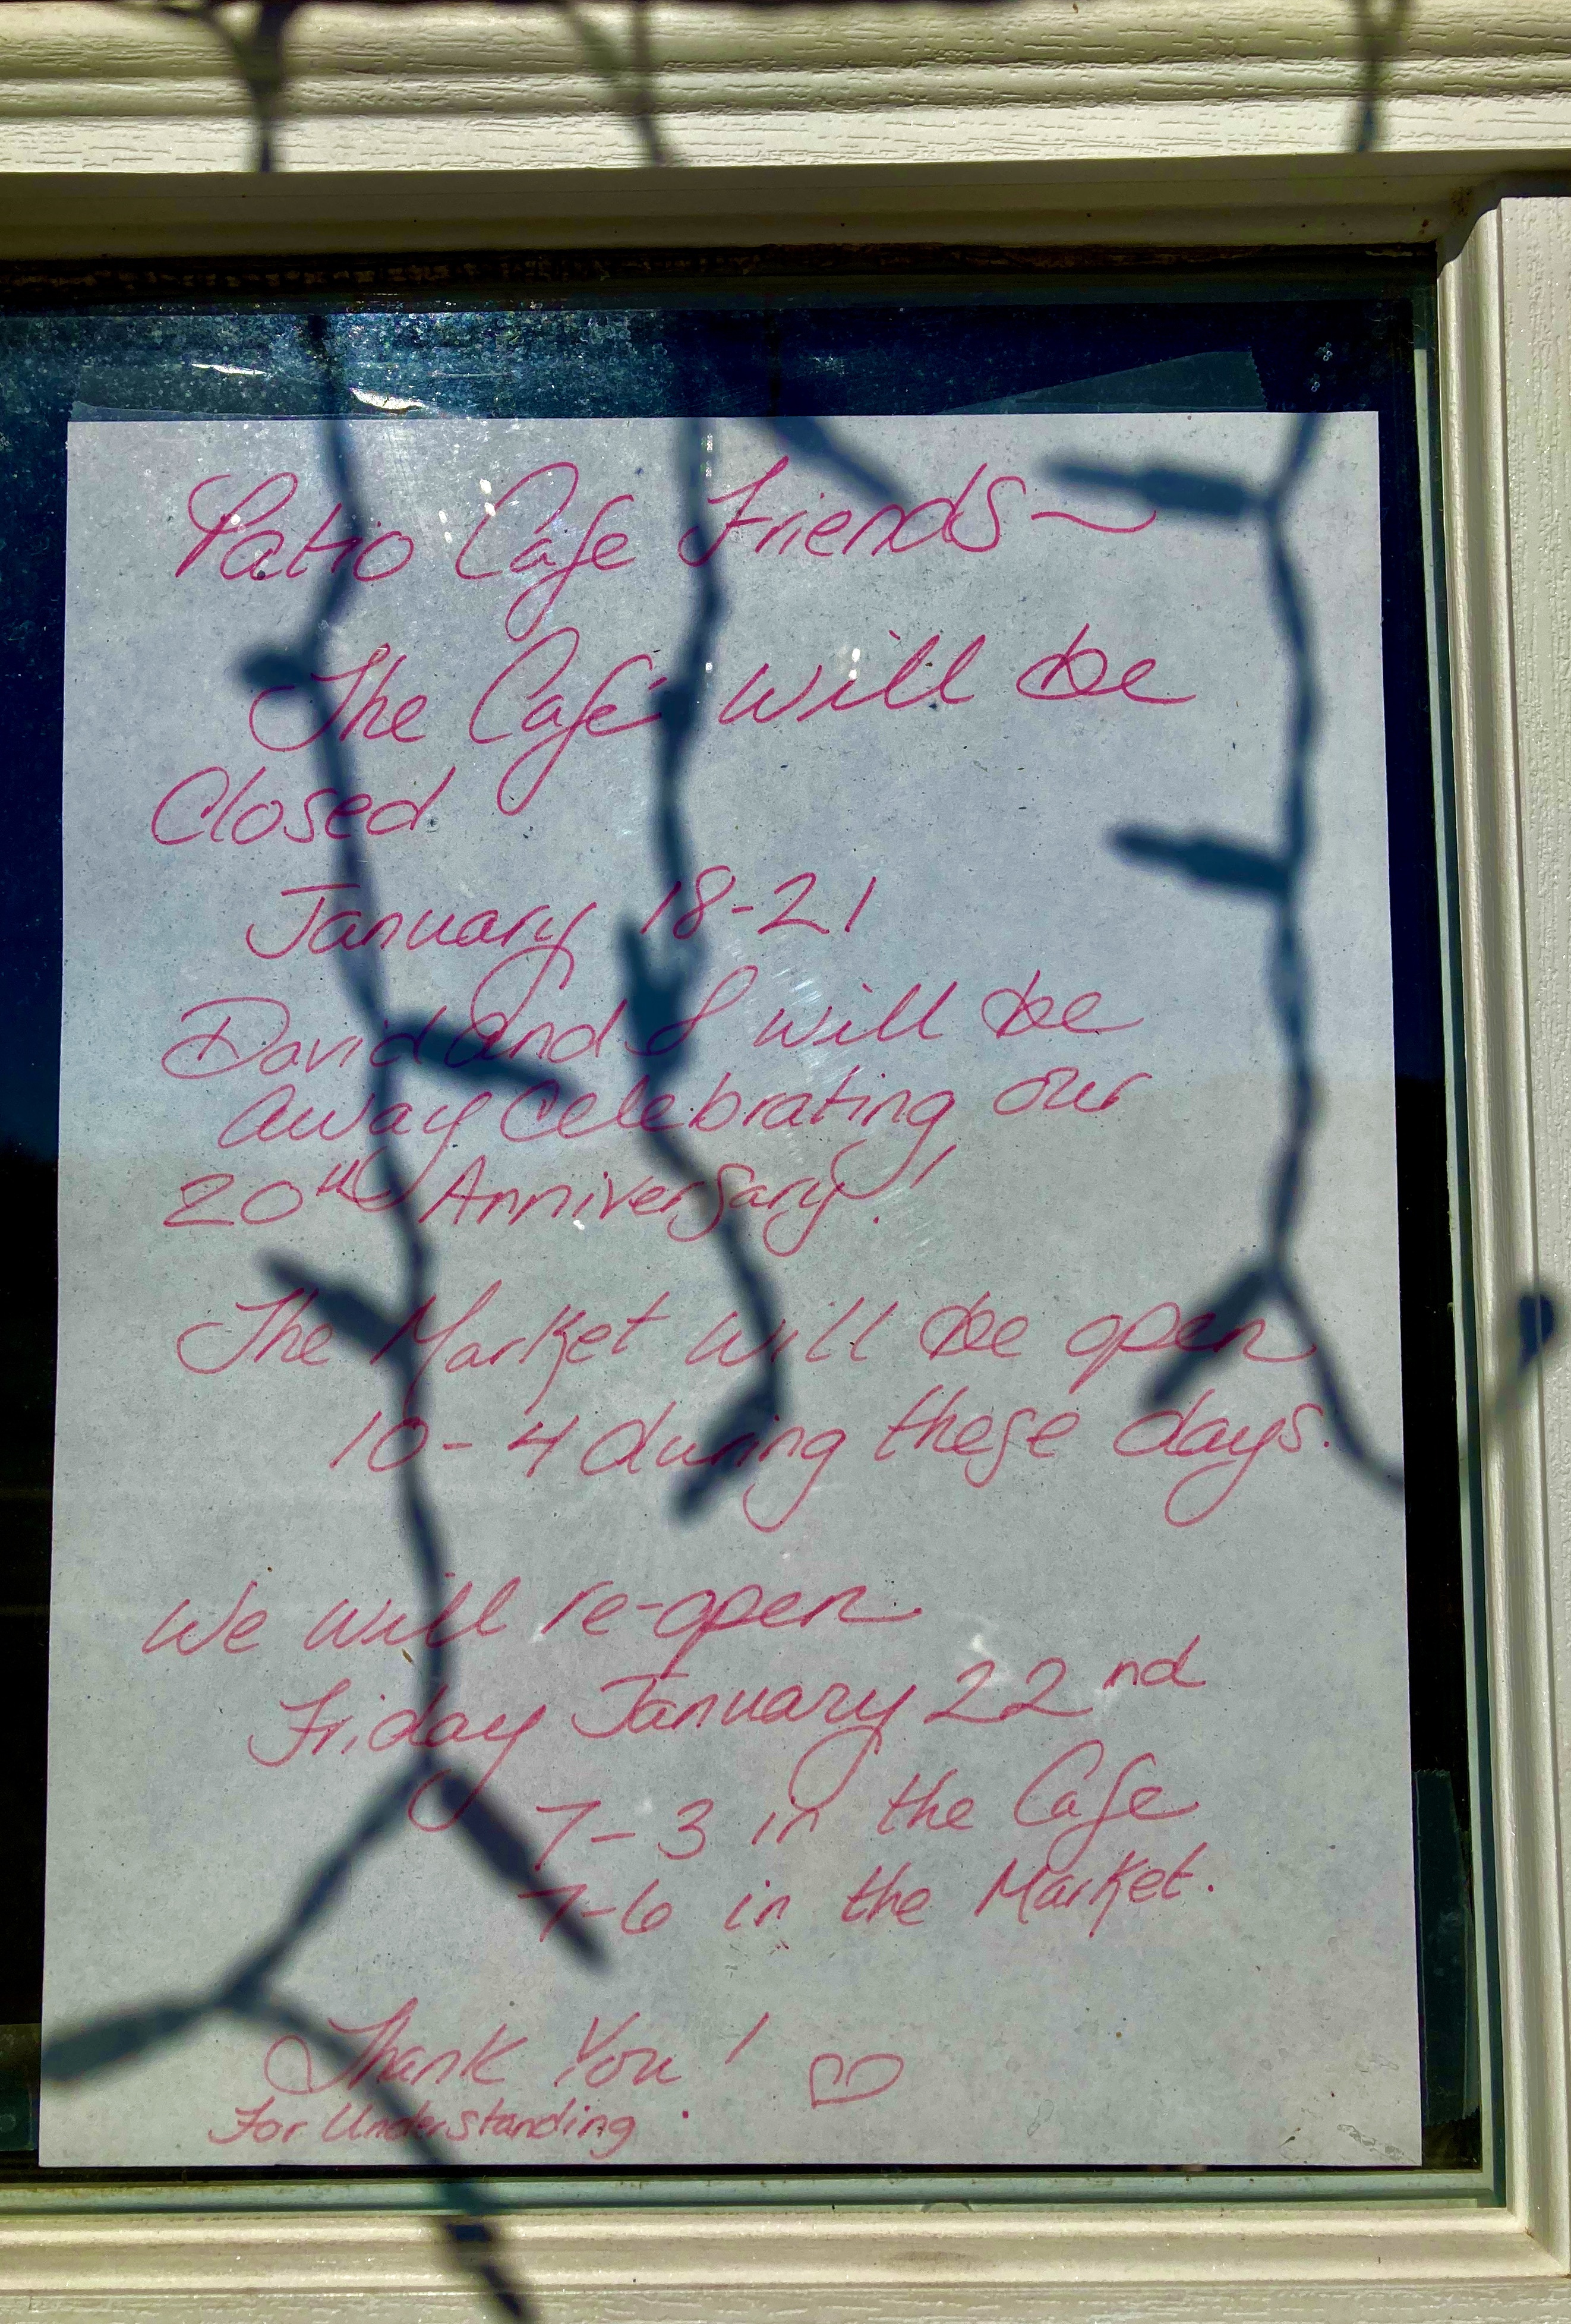 Patio Cafe Friends ~
The Café will be
Closed
January 18-21
David and I will be
away Celebrating our
20th Anniversary!
The Market will be open
10-4 during these days.
We will re-open
Friday January 22nd
7-3 in the Cafe
7-6 in the Market.
Thank You! ♡
For Understanding